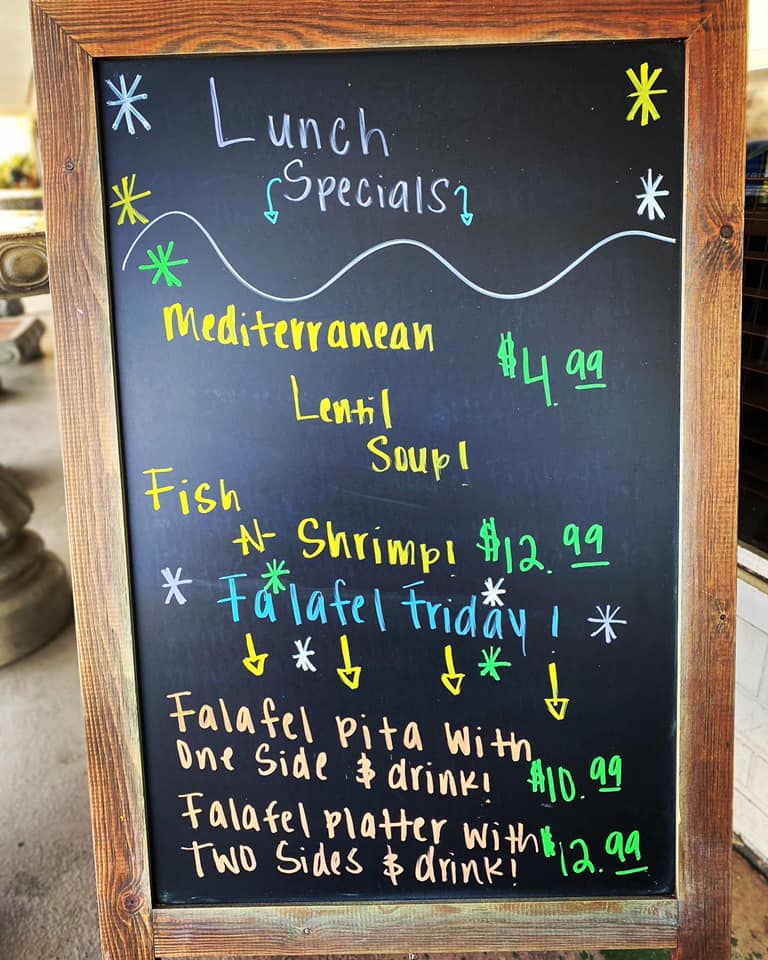 Lunch
Specials
Mediterranean $4.99
Lentil
Soup!
Fish
-N- Shrimp! $12.99
Falafel Friday!
Falafel pita with
One Side & drink! $10.99
Falafel platter with $12.99
Two Sides & drink!